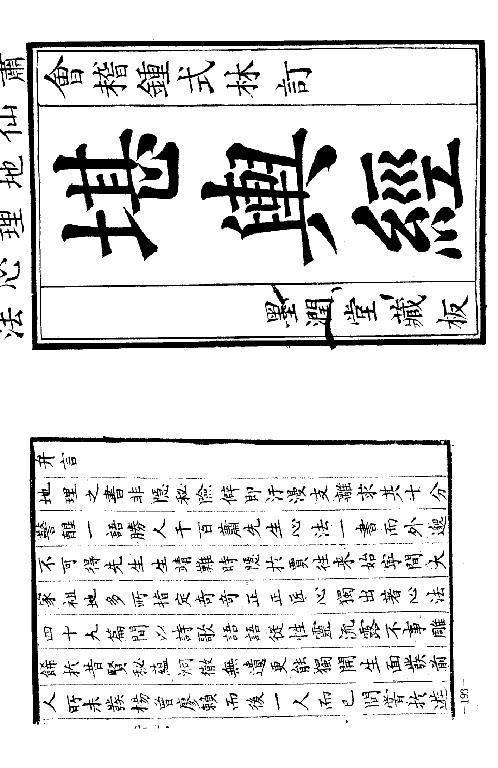 蕭仙地理心法
會稽鍾式林訂
堪輿經
墨潤堂藏板
弁言
地理之書非隱秘險僻即汗漫支離求其十分
警醒一語勝人千百蕭先生心法一書而外邈
不可得先生生靖難時隱於賈往來始寧間大
家祖地多所指定奇奇正正匠心獨出著心法
四十九篇間以詩歌語語從性靈流露不事雕
餙於昔賢秘蘊洞徹無遺更能獨開生面發前
人所未發楊曾廖賴而後一人而已間嘗於遊
—193—